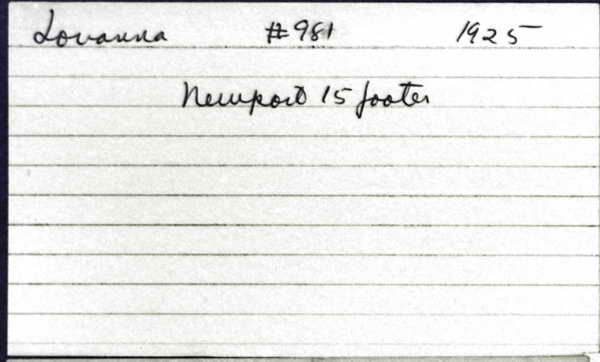 Lovanna #981 1925
Newport 15 footer